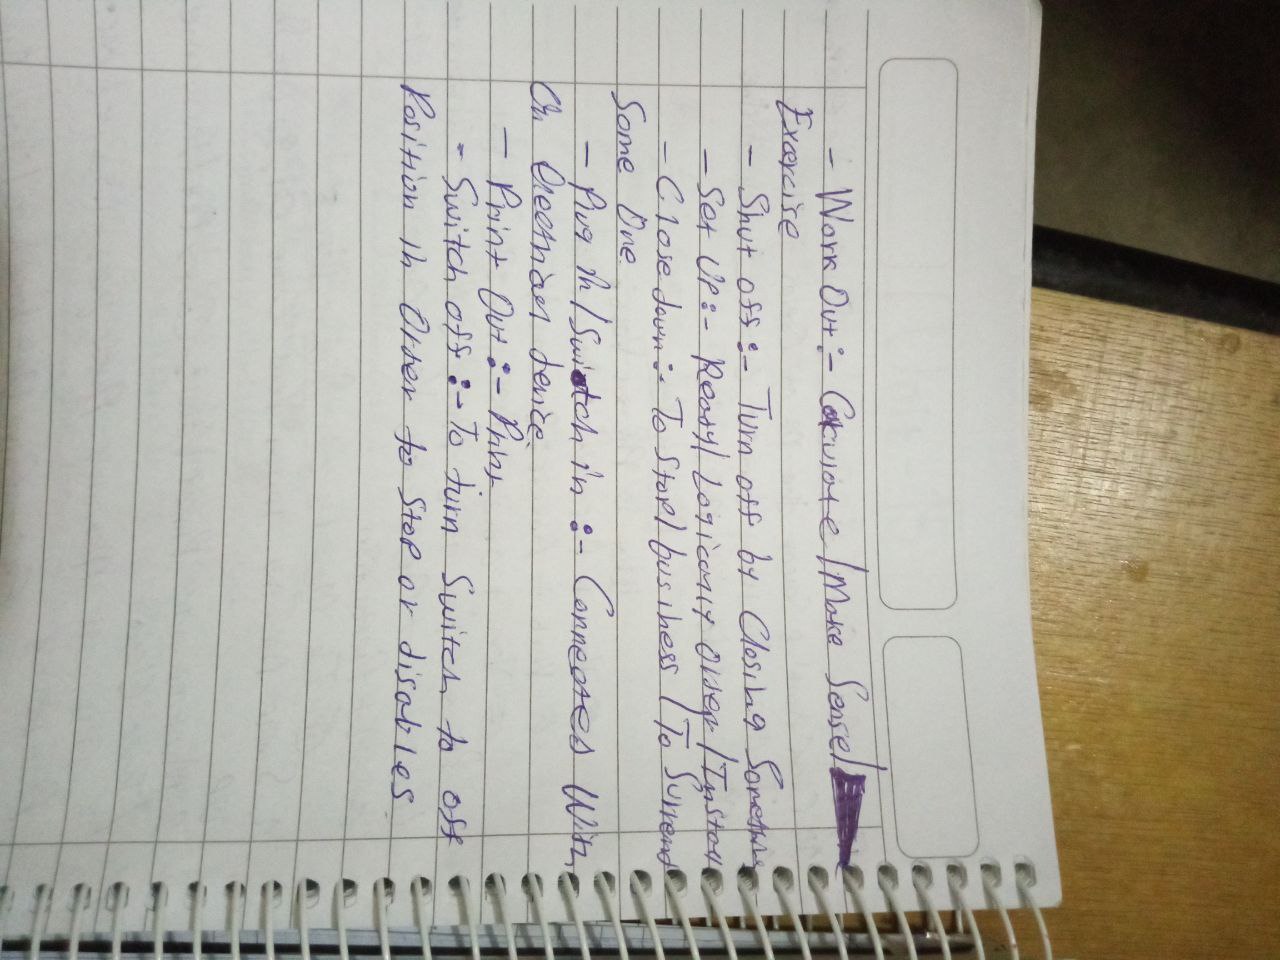 - Work Out :- Calculate / Make Sense /
Exercise
- Shut off :- Turn off by Closing Something
- Set UP :- Ready / Logically Order / Install
- Close down :- To Stop / business / To Surrend
Some One
- Plug in / Switch in :- Connected With
On Electrical device.
- Print Out :- Print
- Switch off :- To turn Switch to off
Position in Order to Stop or disables.